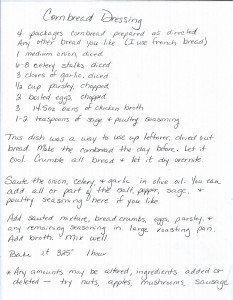 Cornbread Dressing
4 packages cornbread prepared as directed
Any other bread you like (I use french bread)
1 medium onion, diced
6-8 celery stalks, diced
3 cloves of garlic, diced
1/2 cup parsley, chopped
2 boiled eggs, chopped
3 14.5oz cans of chicken broth
1-2 teaspoons of sage & poultry seasoning
This dish was a way to use up leftover, dried out
bread. Make the cornbread the day before. Let it
cool. Crumble all bread & let it dry overnite.
Saute the onion, celery, & garlic in olive oil. You can
add all or part of the salt, pepper, sage, &
poultry seasoning here if you like.
Add sauted mixture, bread crumbs, eggs, parsley, &
any remaining seasoning in large roasting pan.
Add broth. Mix well.
Bake it 325° 1 hour
* Any amounts may be altered, ingredients added or
deleted — try nuts, apples, mushrooms, sausage